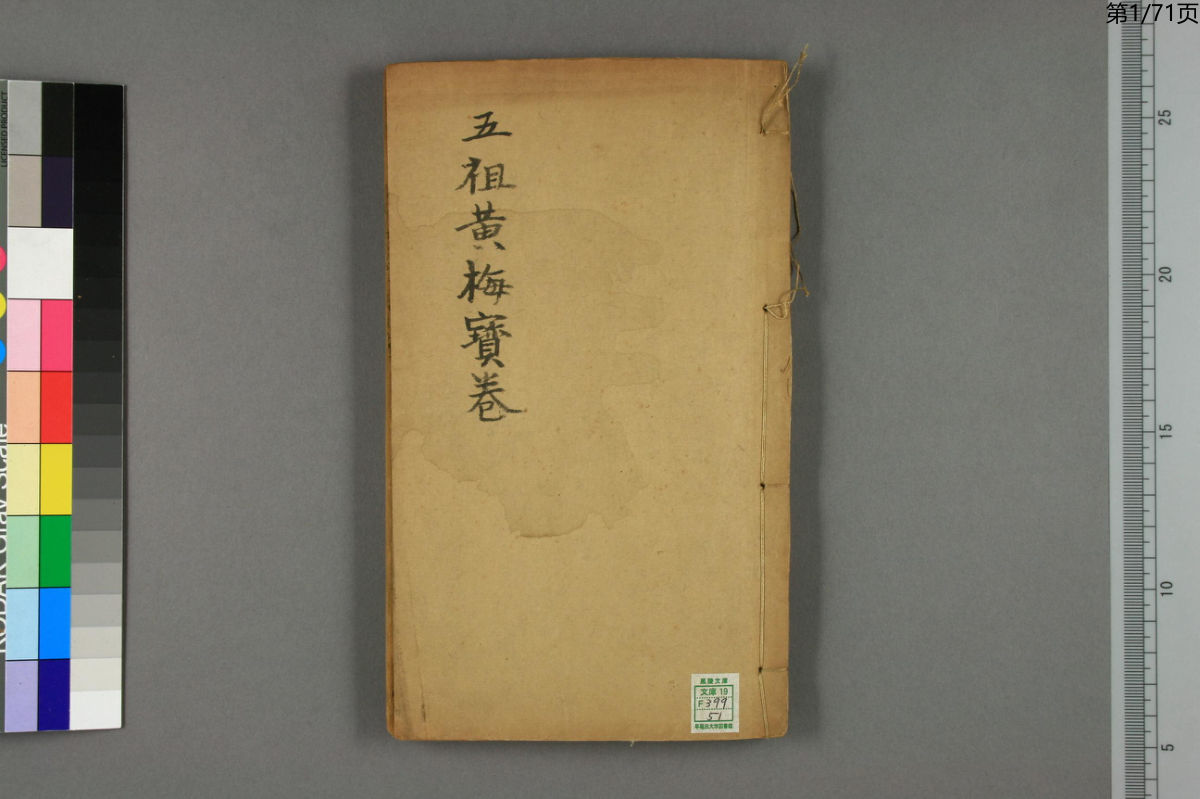 第1/71页
五祖黄梅寶卷
風陵文庫
文庫 19
F399
51
早稲田大学図書館
LICENSED PRODUCT
KODAK Gray Scale
25
20
15
10
5